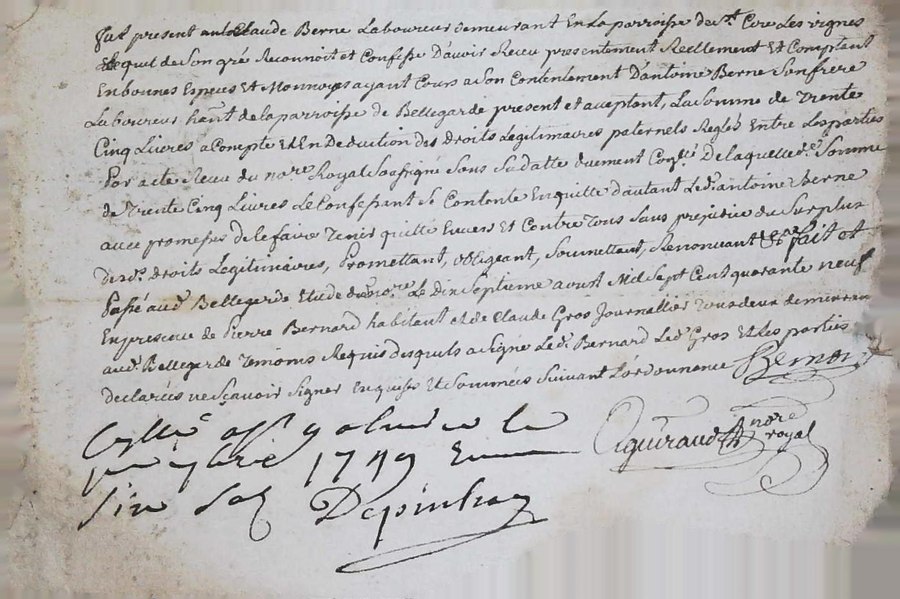 fut present Claude Berne Laboureur demeurant En La parroisse de St. Cire Les vignes
Lequel de Son gré Reconnoit et Confesse D'avoir Receu presentement Reellement Et Comptant
En bonnes Especes Et Monnoyes ayant Cours a Son Contentement D'antoine Berne Son frere
Laboureur hant de la parroisse de Bellegarde present et aceptant, La Somme de Trente
Cinq Livres a Compte Et En Deduction des Droits Legitimaires paternels Reglés Entre Les parties
Por acte Receu du nore Royal Soussigné Sous Sa datte duement Laquelle de. Somme
de Trente Cinq Livres Le Confessant Se Contente En quitte d'autant Led. antoine Berne
avec promesses de le faire Tenir quitte Envers Et Contre Tous Sans prejudice du Surplus
desd. Droits Legitimaires, Promettant, obligeant, Soumettant, Renonceant fait et
Passé aud. Bellegarde Etude dud. nore. Le Dix Septieme aoust Mil Sept Cent quarante neuf
En presence de Pierre Bernard habitant et de Claude Gros Journallier Tous deux demeurant
aud. Bellegarde Temoins Requis desquels a Signé Led. Bernard Led. Gros Et Les parties
declarées ne Scavoir Signer Enquises Et Sommées Suivant L'ordonnance Bernard
le
1749
Six Sols Depinhac
Aguiraud nore royal